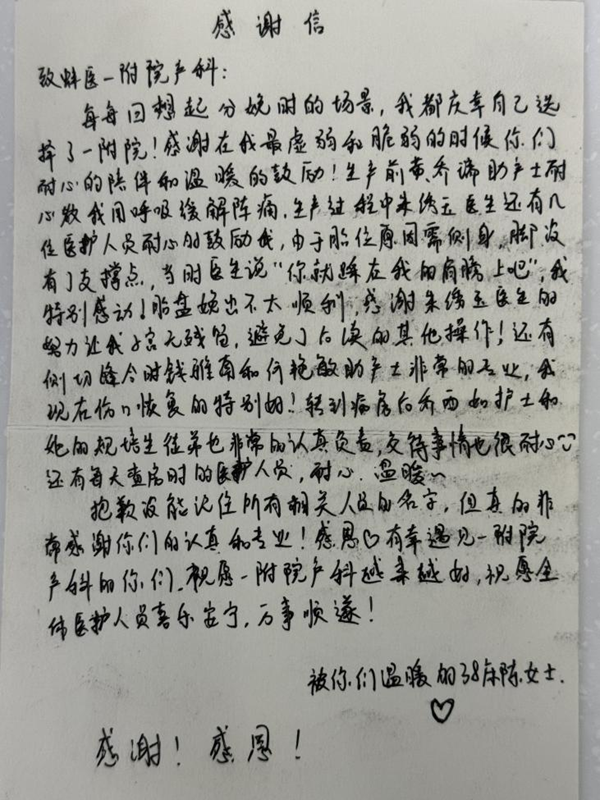 感谢信
致蚌医一附院产科：
每每回想起分娩时的场景，我都庆幸自己选
择了一附院！感谢在我最虚弱和脆弱的时候你们
耐心的陪伴和温暖的鼓励！生产前黄乔谛助产士耐
心教我用呼吸缓解阵痛，生产过程中朱绣玉医生还有几
位医护人员耐心的鼓励我，由于胎位原因需侧身，脚没
有了支撑点，当时医生说“你就踩在我的肩膀上吧”，我
特别感动！胎盘娩出不太顺利，感谢朱绣玉医生的
努力让我子宫无残留，避免了后续的其他操作！还有
侧切缝合时钱雅南和何艳敏助产士非常的专业，我
现在伤口恢复的特别好！转到病房后乔西如护士和
她的规培生徒弟也非常的认真负责，交待事情也很耐心
还有每天查房时的医护人员，耐心、温暖~
抱歉没能记住所有相关人员的名字，但真的非
常感谢你们的认真和专业！感恩♡有幸遇见一附院
产科的你们，祝愿一附院产科越来越好，祝愿全
体医护人员喜乐安宁，万事顺遂！
被你们温暖的38床陈女士.
♡
感谢！感恩！